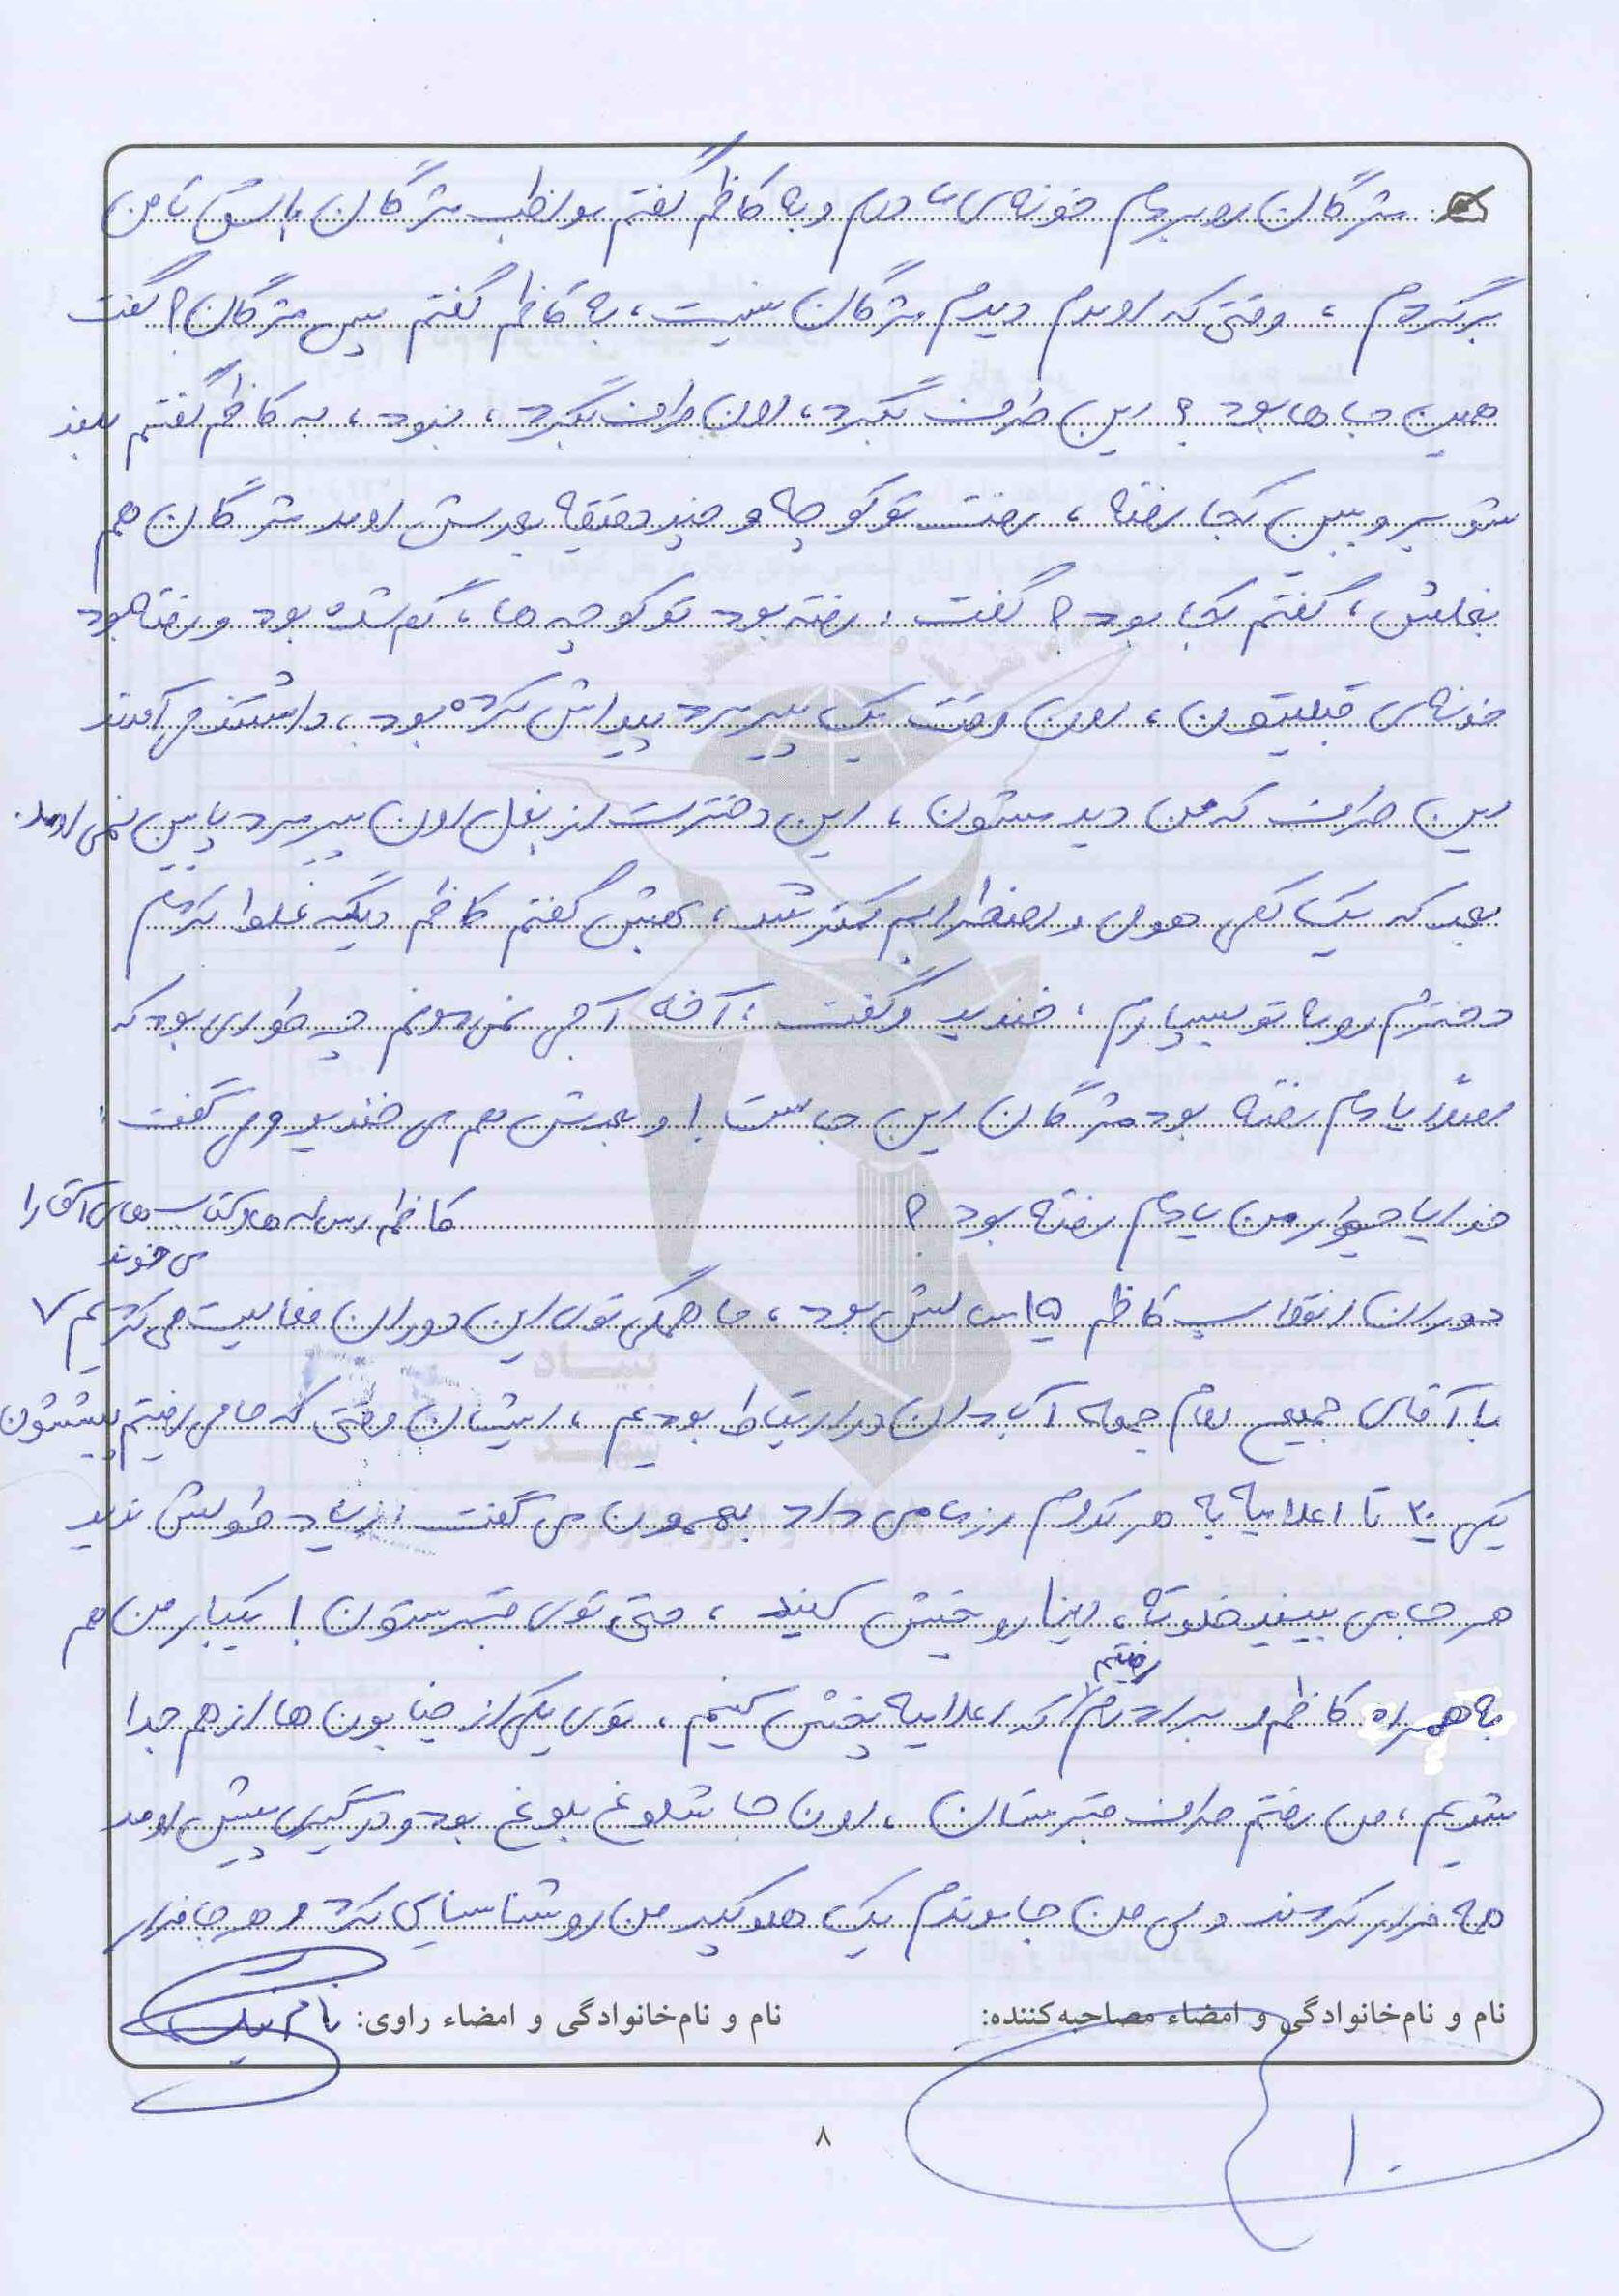 مژگان رو بردم خونه‌ی مادرم و به کاظم گفتم مواظب مژگان باش تا من
برگردم ، وقتی که اومدم دیدم مژگان نیست ، به کاظم گفتم پس مژگان ؟ گفت
همین جاها بود ؟ این طرف بگرد ، اون طرف بگرد ، نبود ، به کاظم گفتم بلند
شو برو ببین کجا رفته ، رفت تو کوچه و چند دقیقه بعدش اومد مژگان هم
بغلش ، گفتم کجا بود ؟ گفت : رفته بود تو کوچه ها ، گم شده بود و رفته بود
خونه‌ی قبلیتون ، اون وقت یک پیرمرد پیداش کرده بود ، داشتند می آمدند
این طرف که من دیدمشون ، این دخترت از بغل اون پیرمرد پایین نمی اومد.
بعد که یک کمی هول و اضطرابم کمتر شد ، بهش گفتم کاظم دیگه غلط کردم
دخترم رو به تو بسپارم ، خندید و گفت : آخه آجی نمی دونم چه طوری بود که
اصلاً یادم رفته بود مژگان این جاست ! و بعدش هم می خندید و می گفت :
خدایا چطور من یادم رفته بود ؟
کاظم رساله ها و کتاب های آقا را
می خوند
دوران انقلاب کاظم ۱۵ سالش بود ، ما همگی توی این دوران فعالیت می کردیم ✓
با آقای جمی امام جمعه آبادان در ارتباط بودیم ، ایشان وقتی که ما می رفتیم پیششون
یکی ۲۰ تا اعلامیه به هر کدوم از ما می داد بهمون می گفت : زیاد طولش ندید
هر جا می بینید خلوته ، اینا رو پخش کنید ، حتی توی قبرستون ! یکبار من هم
به همراه کاظم و برادرم رفتیم که اعلامیه پخش کنیم ، توی یکی از خیابون ها از هم جدا
شدیم ، من رفتم طرف قبرستان ، اون جا شلوغ پلوغ بود و درگیری پیش اومد
همه فرار کردند ولی من جا موندم یک من رو شناسایی کرد و هر جا فرار
نام و نام‌خانوادگی و امضاء مصاحبه‌کننده:
نام و نام‌خانوادگی و امضاء راوی:
۸